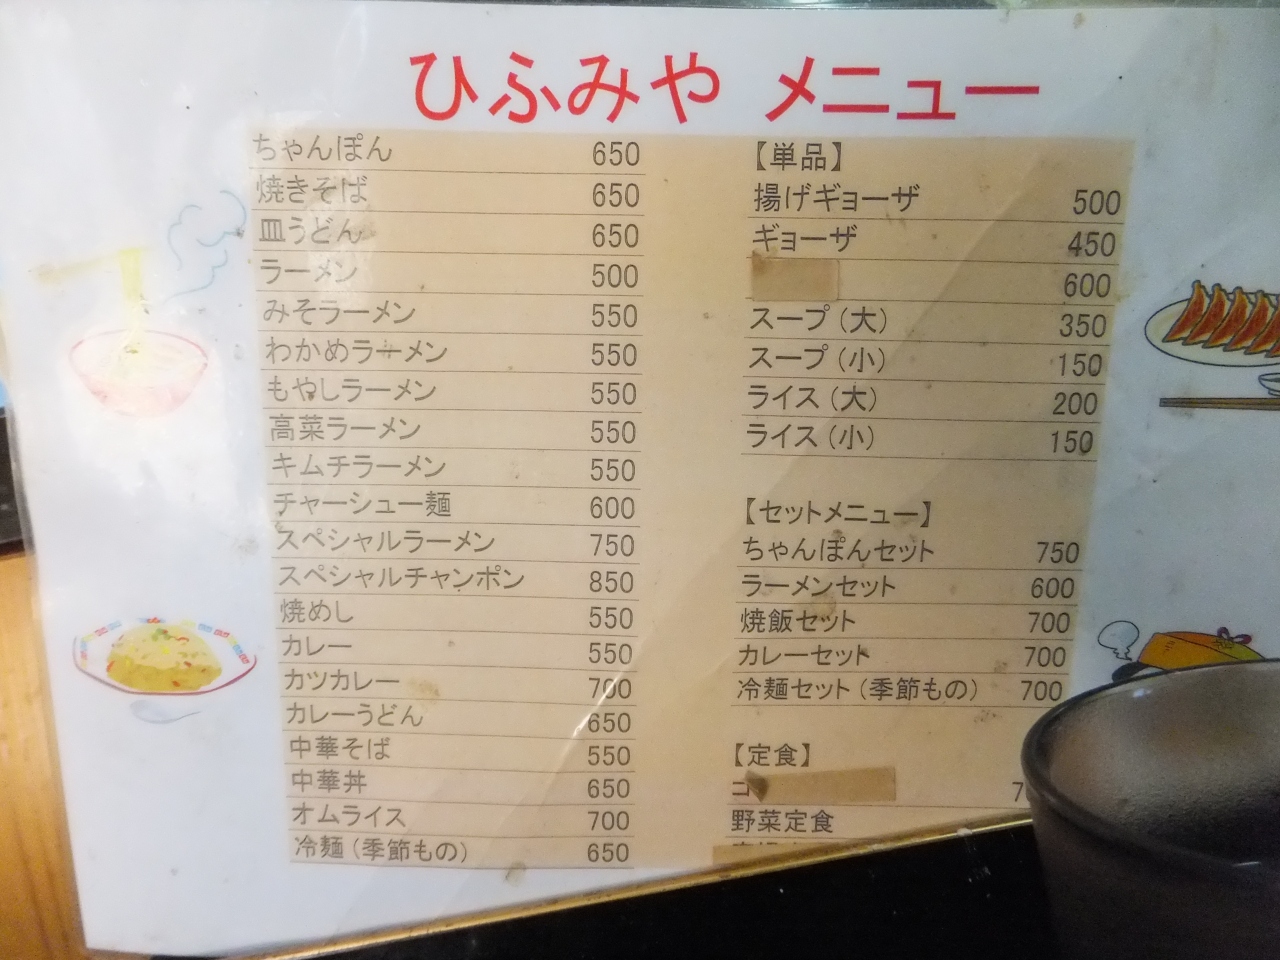 ひふみや メニュー
ちゃんぽん 650
焼きそば 650
皿うどん 650
ラーメン 500
みそラーメン 550
わかめラーメン 550
もやしラーメン 550
高菜ラーメン 550
キムチラーメン 550
チャーシュー麺 600
スペシャルラーメン 750
スペシャルチャンポン 850
焼めし 550
カレー 550
カツカレー 700
カレーうどん 650
中華そば 550
中華丼 650
オムライス 700
冷麺(季節もの) 650
【単品】
揚げギョーザ 500
ギョーザ 450
600
スープ(大) 350
スープ(小) 150
ライス(大) 200
ライス(小) 150
【セットメニュー】
ちゃんぽんセット 750
ラーメンセット 600
焼飯セット 700
カレーセット 700
冷麺セット(季節もの) 700
【定食】
野菜定食